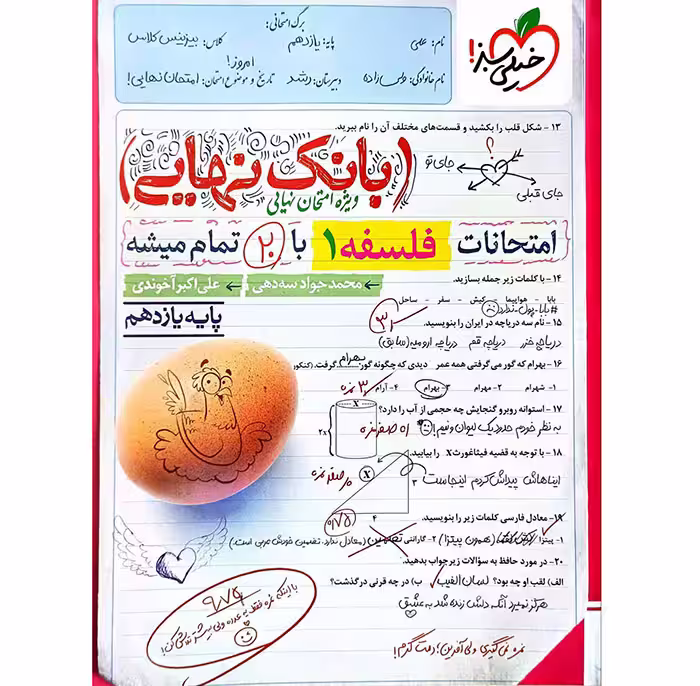 برگ امتحانی:
نام: علی
پایه: یازدهم
کلاس: بیزینس کلاس
نام خانوادگی: ولی زاده
دبیرستان: رشد
تاریخ و موضوع امتحان: امتحان نهایی!
امروز!
خیلی سبز!
۱۳ - شکل قلب را بکشید و قسمت‌های مختلف آن را نام ببرید.
؟
جای تو
جای قبلی
(بانک نهایی)
ویژه امتحان نهایی
امتحانات فلسفه ۱ با ۲۰ تمام میشه
محمدجواد سه‌دهی
علی‌اکبر آخوندی
پایه یازدهم
۱۴ - با کلمات زیر جمله بسازید.
بابا - هواپیما - کیش - سفر - ساحل
#بابا_پول_ندارد
۱۵ - نام سه دریاچه در ایران را بنویسید.
دریاچه خزر دریاچه قم دریاچه ارومیه (سابق)
۱۶ - بهرام که گور می‌گرفتی همه عمر دیدی که چگونه گور بهرام گرفت. (کنکور
۱- شهرام ۲- مهرام ۳- بهرام ۴- آرام
۳ نمره
۱۷ - استوانه روبرو گنجایش چه حجمی از آب را دارد؟
به نظر خودم حدود یک لیوان و نیم!
اه صفر نمره
x
2x
۱۸ - با توجه به قضیه فیثاغورث x را بیابید.
ایناهاش پیداش کردم اینجاست
صفر نمره
x
۳
۴
۰/۷۵
۱۹ - معادل فارسی کلمات زیر را بنویسید.
۱- پیتزا (همون پیتزا) ۲- گارانتی تضمین (معادل ندارد. تضمین خودش عربی است.)
۲۰ - در مورد حافظ به سؤالات زیر جواب بدهید.
الف) لقب او چه بود؟ لسان الغیب ب) در چه قرنی درگذشت؟
هرگز نمیرد آنکه دلش زنده شد به عشق
۹/۷۵
با اینکه نمره فقط یه عدده ولی بیشتر تلاش کن!
نمره نمی‌گیری ولی آفرین؛ دمت گرم!